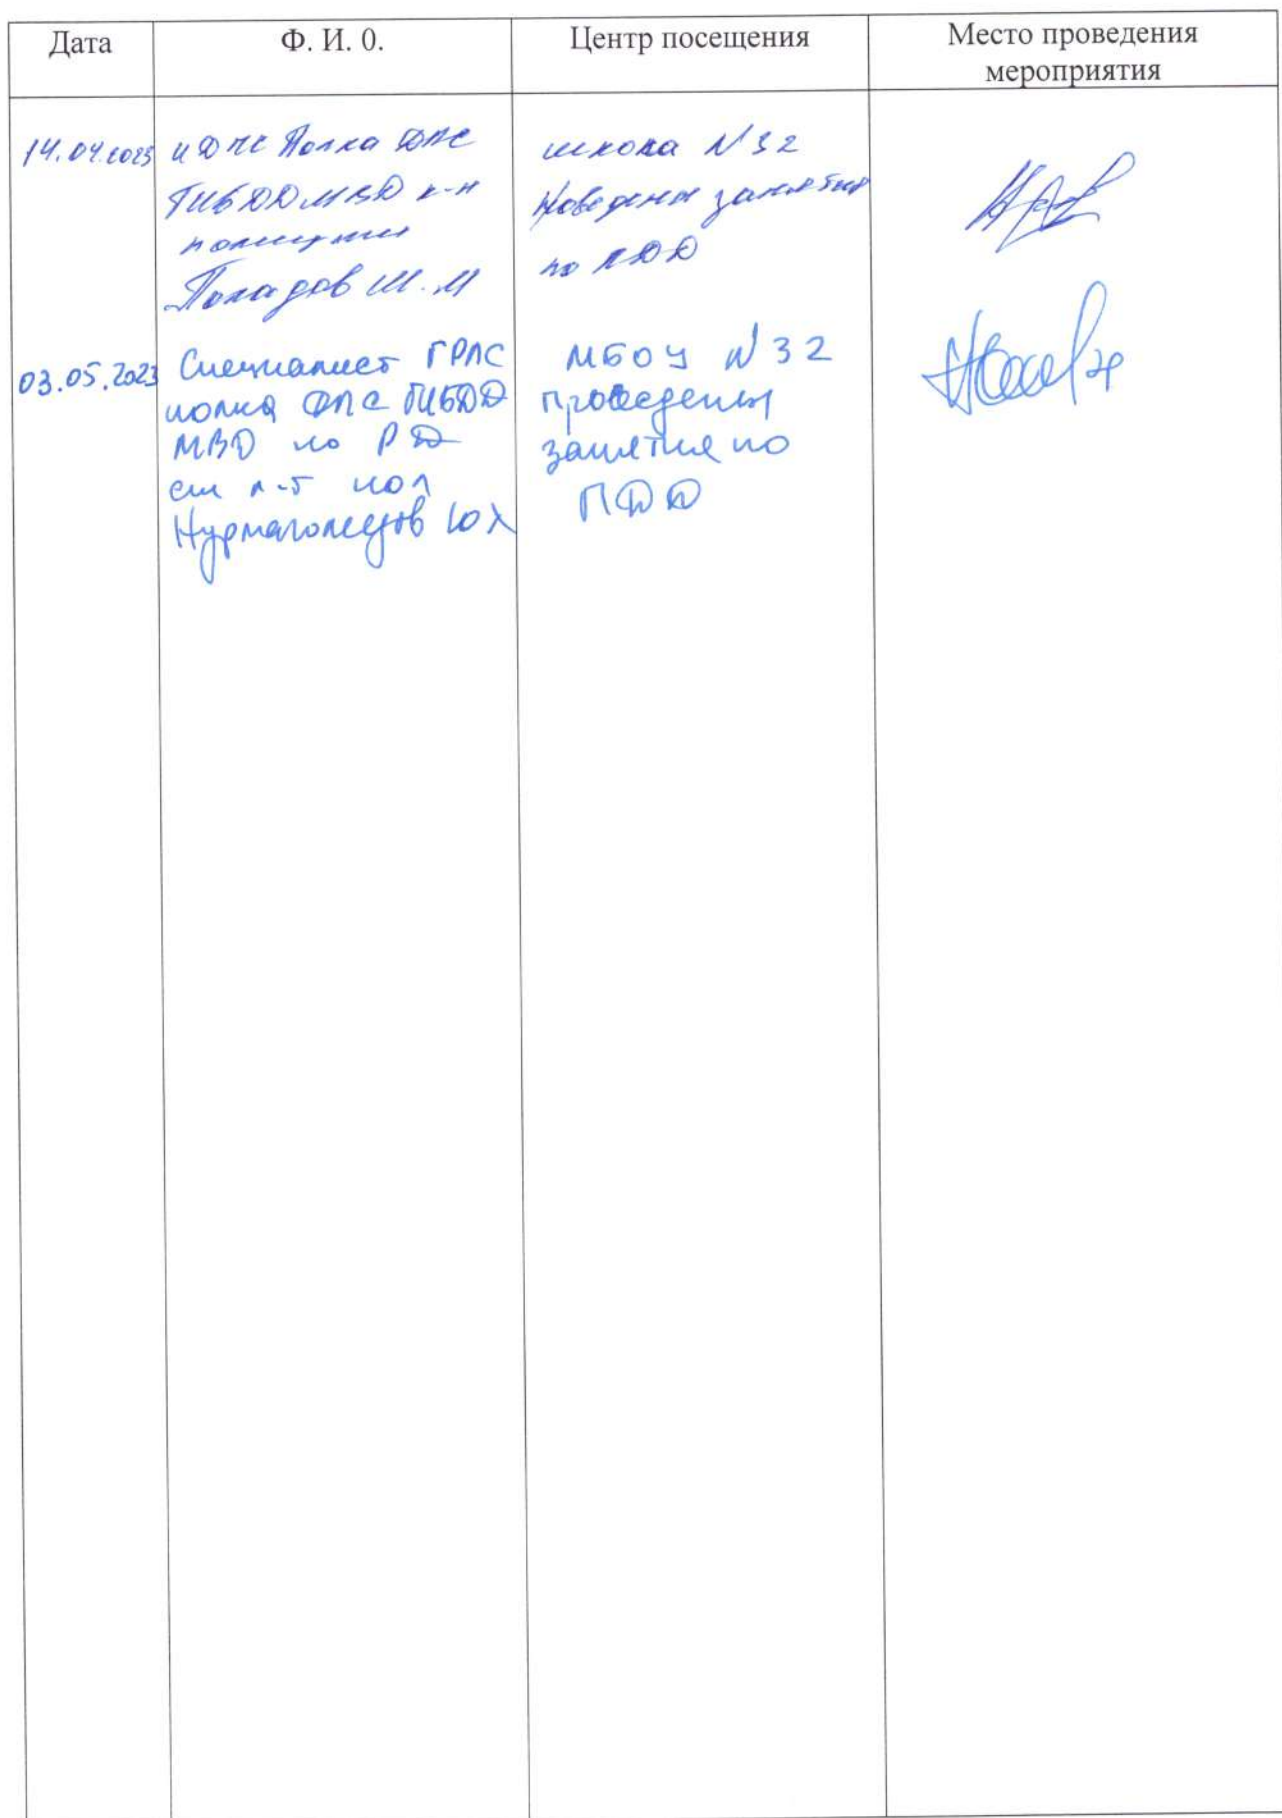 Дата
Ф. И. О.
Центр посещения
Место проведения
мероприятия
14.04.2023
и ДПС Полка ДПС
ГИБДД МВД к-н
полиции
Поладов Ш. М
школа N 32
Проведены занятия
по ПДД
03.05.2023
Специалист ГРЛС
полка ДПС ГИБДД
МВД по РД
ст л-т пол
Нурмагомедов Ю Х
МБОУ N 32
проведены
занятия по
ПДД